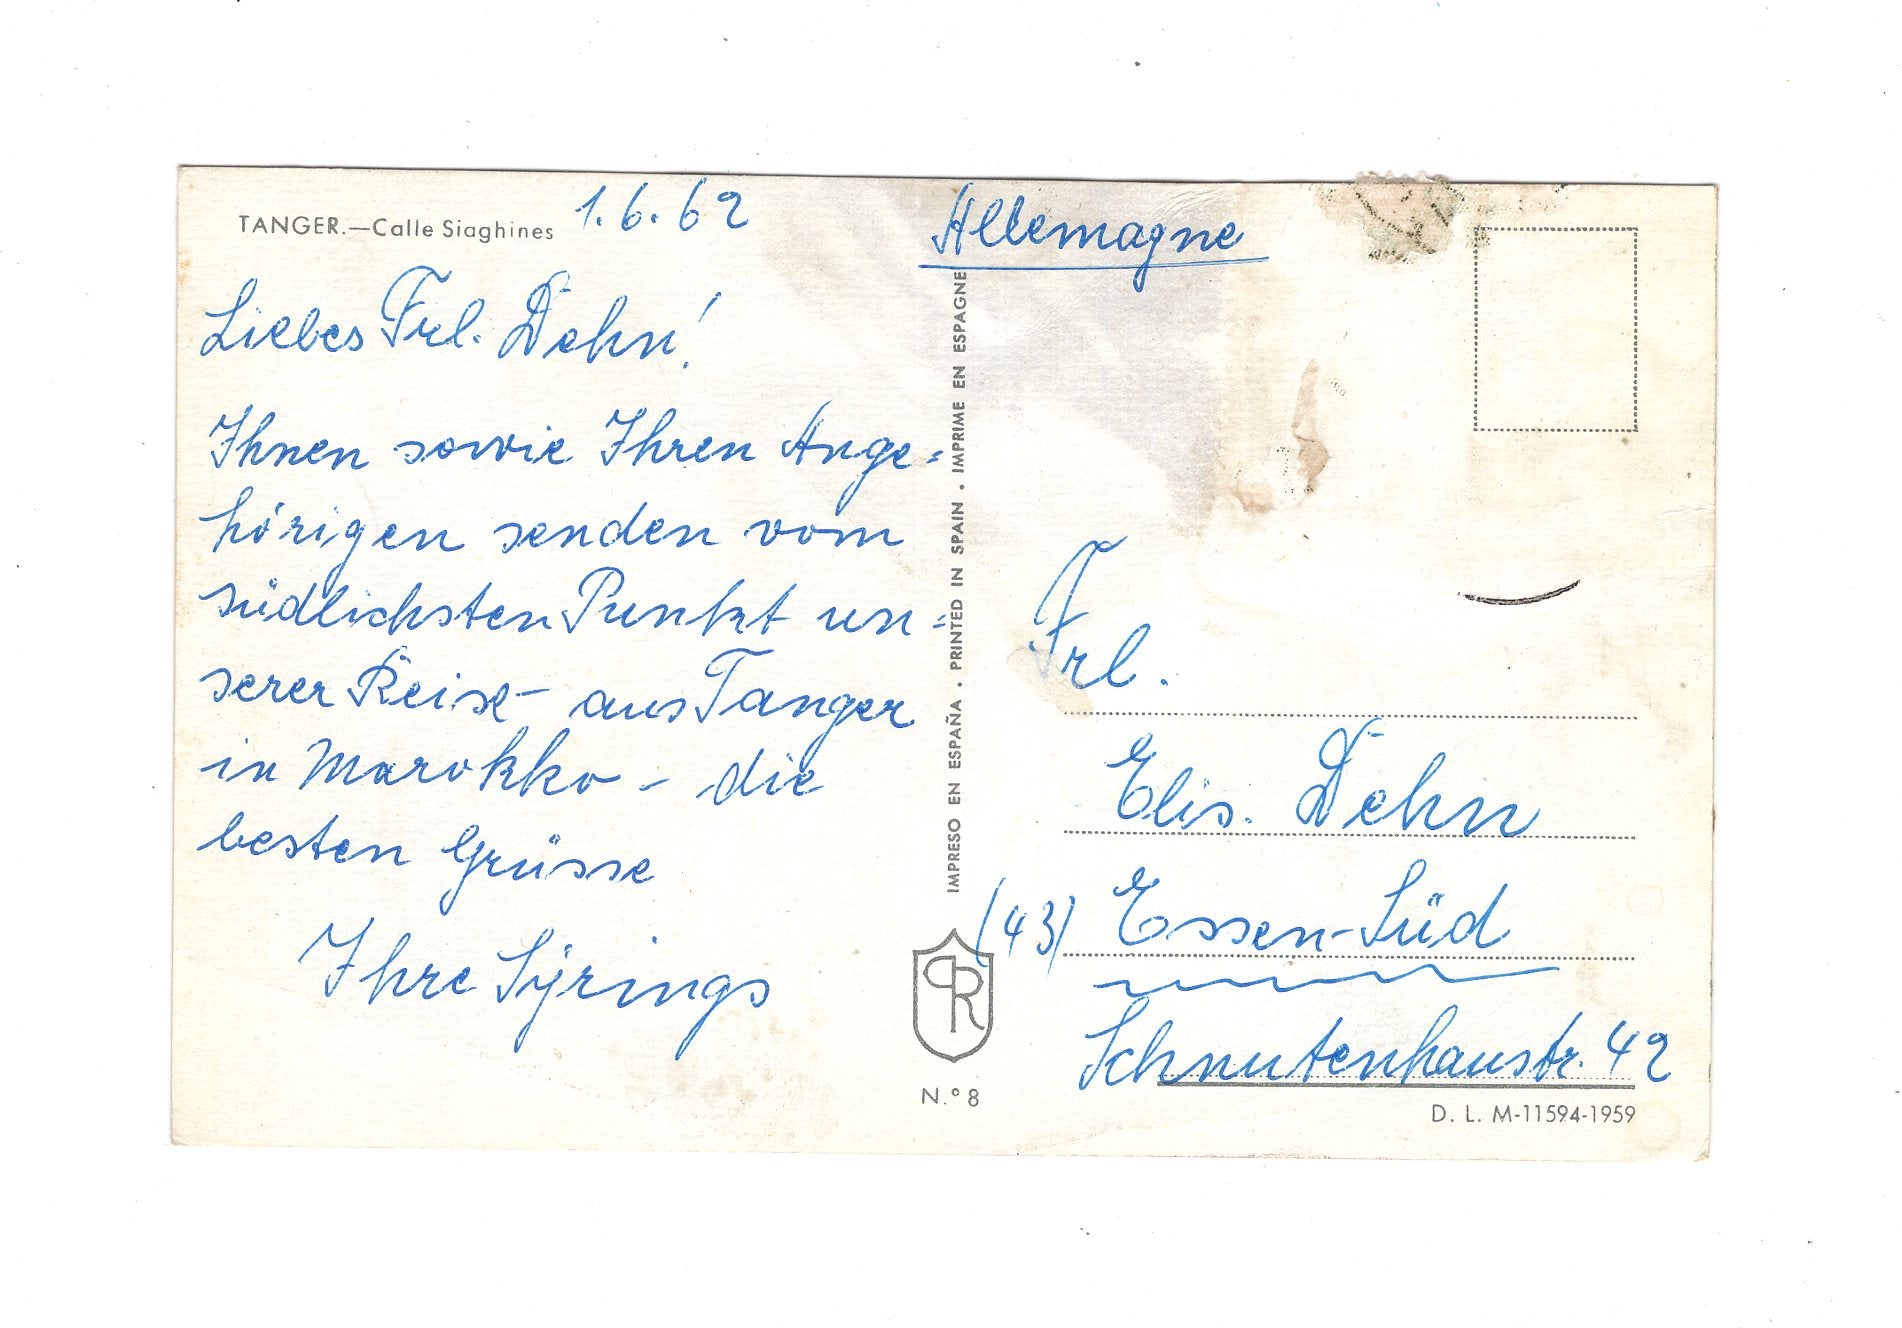 TANGER.—Calle Siaghines
1.6.62
Liebes Frl. Dehn!
Ihnen sowie Ihren Ange=
hörigen senden vom
südlichsten Punkt un=
serer Reise – aus Tanger
in Marokko – die
besten Grüsse
Ihre Syrings
IMPRESO EN ESPAÑA . PRINTED IN SPAIN . IMPRIME EN ESPAGNE
PR
N.º 8
Allemagne
Frl.
Elis. Dehn
(43) Essen-Süd
Schnutenhausstr. 42
D. L. M-11594-1959